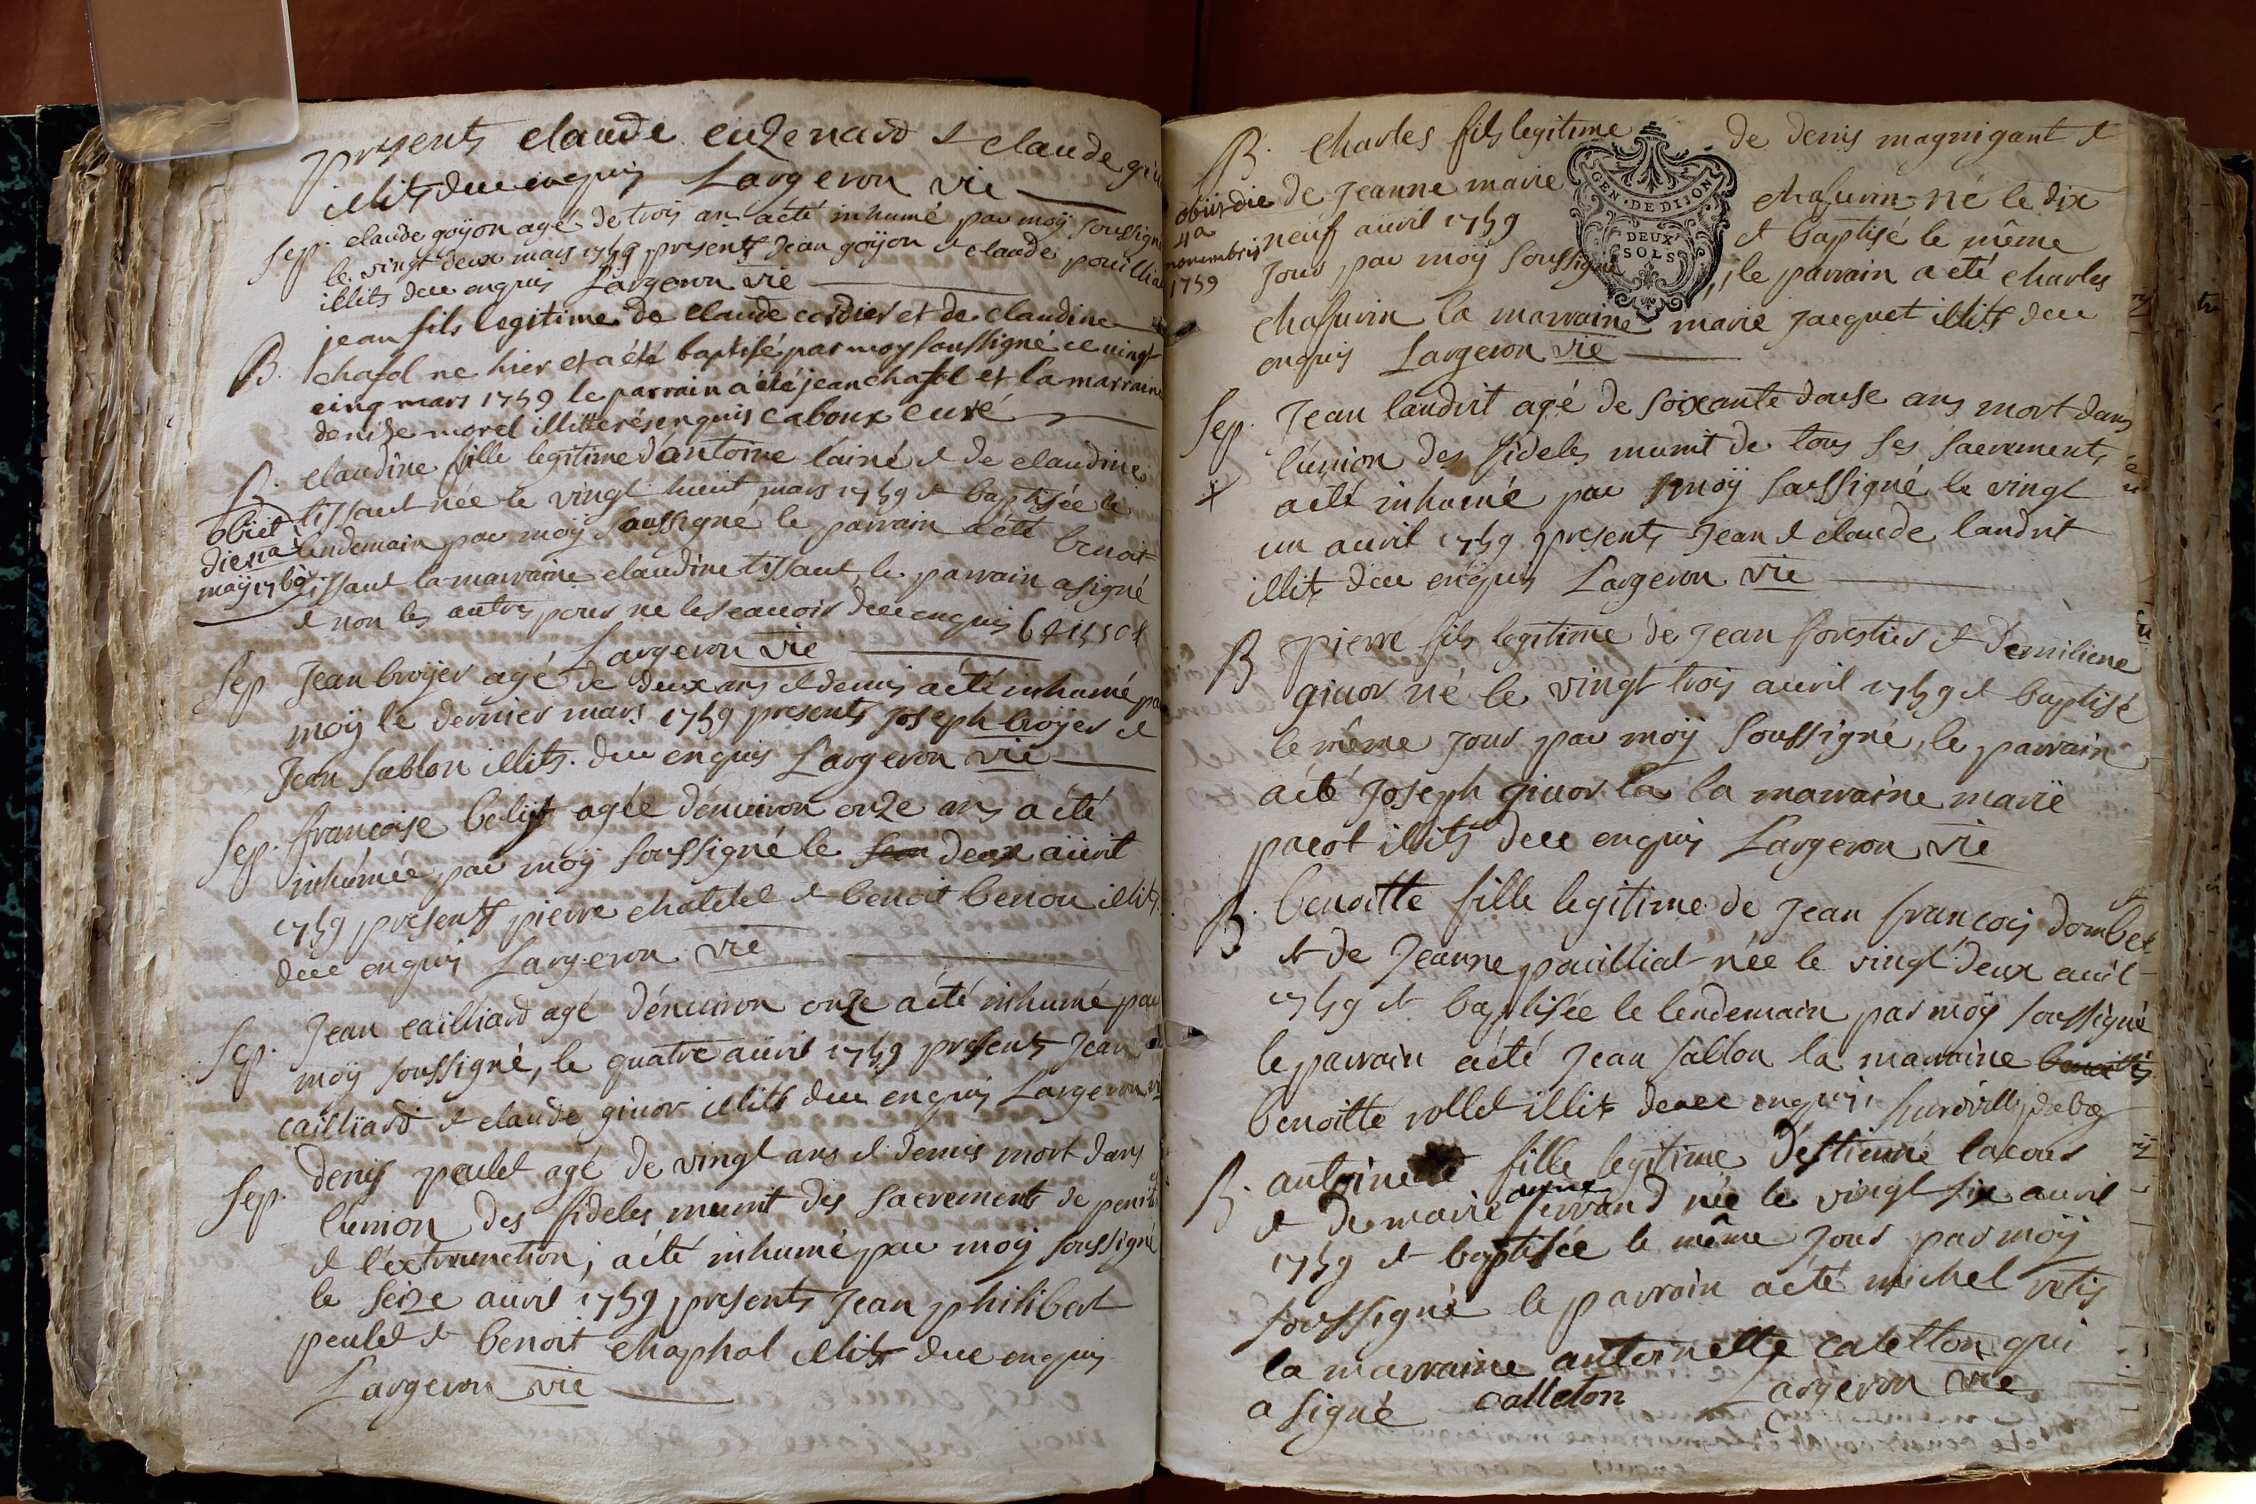 presents claude éuzenard & claude
illits due enquis Largeron vic
Sep. claude goÿon agé de trois ans a eté inhumé par moÿ soussigné
le vingt deux mars 1759 presents Jean goÿon & claude pouilliat
illits due enquis Largeron vic
jean fils legitime de claude cordier et de claudine
B. chafol ne hier et a été baptisé par moy soussigné ce vingt
cinq mars 1759 le parrain a été jean chafol et la marraine
denize morel illitterés enquis caboux curé
B. claudine fille legitime d'antoine lainé & de claudine
tissaut née le vingt huit mars 1759 & baptisée le
obiit die maÿ 176
lendemain par moÿ soussigné le parrain a eté benoit
tissaut la marraine claudine tissaut, le parrain a signé
& non les autres pour ne le scauoir due enquis
Largeron vic
Sep. Jean broÿer agé de deux ans & demis a eté inhumé par
moÿ le dernier mars 1759 presents Joseph broÿer &
Jean sablon illits. due enquis Largeron vic
Sep. francoise agée d'enuiron onze ans a été
inhumée par moÿ soussigné le deux aüril
1759 presents pierre chatelet & benoit benon illits
due enquis Largeron vic
Sep. Jean cailliard agé d'enuiron onze a été inhumé par
moÿ soussigné, le quatre aüril 1759 presents Jean
cailliard & claude giuor illits due enquis Largeron vic
Sep. denis peulet agé de vingt ans & demis mort dans
l'union des fideles munit des sacrements de
& l'extremonction, a été inhumé par moÿ soussigné
le seize aüril 1759 presents Jean philibert
peulet & benoit chaphal illits due enquis
Largeron vic
B. charles fils legitime de denis magnigant &
de Jeanne marie chafurin né le dix
obiit die 4a novembris 1759
neuf aüril 1759 & baptisé le même
Jour par moÿ soussigné, le parrain a été charles
chafurin la marraine marie Jacquet illits due
enquis Largeron vic
GEN. DE DIJON
DEUX SOLS
Sep. Jean landrit agé de soixante douse ans mort dans
l'union des fideles munit de tous ses sacrements
a été inhumé par moÿ soussigné le vingt
un auril 1759 presents Jean & claude landrit
illits due enquis Largeron vic
B pierre fils legitime de Jean forestier & d'emiliene
giuor né le vingt trois auril 1759 & baptisé
le même Jour par moÿ soussigné, le parrain
a été Joseph giuor la la marraine marie
pacot illits due enquis Largeron vic
B. benoitte fille legitime de Jean francois dombet
& de Jeanne pouilliat née le vingt deux auril
1759 & baptisée le lendemain par moÿ soussigné
le parrain a été Jean sablon la marraine benoitte
benoitte rollet illits due enquis
B. antoinette fille legitime d'estienne lacour
& de marie anne ferrand née le vingt six auril
1759 & baptisée le même Jour par moÿ
soussigné le parrain a été michel retis
la marraine antoinette caletton qui
a signé calleton Largeron vic